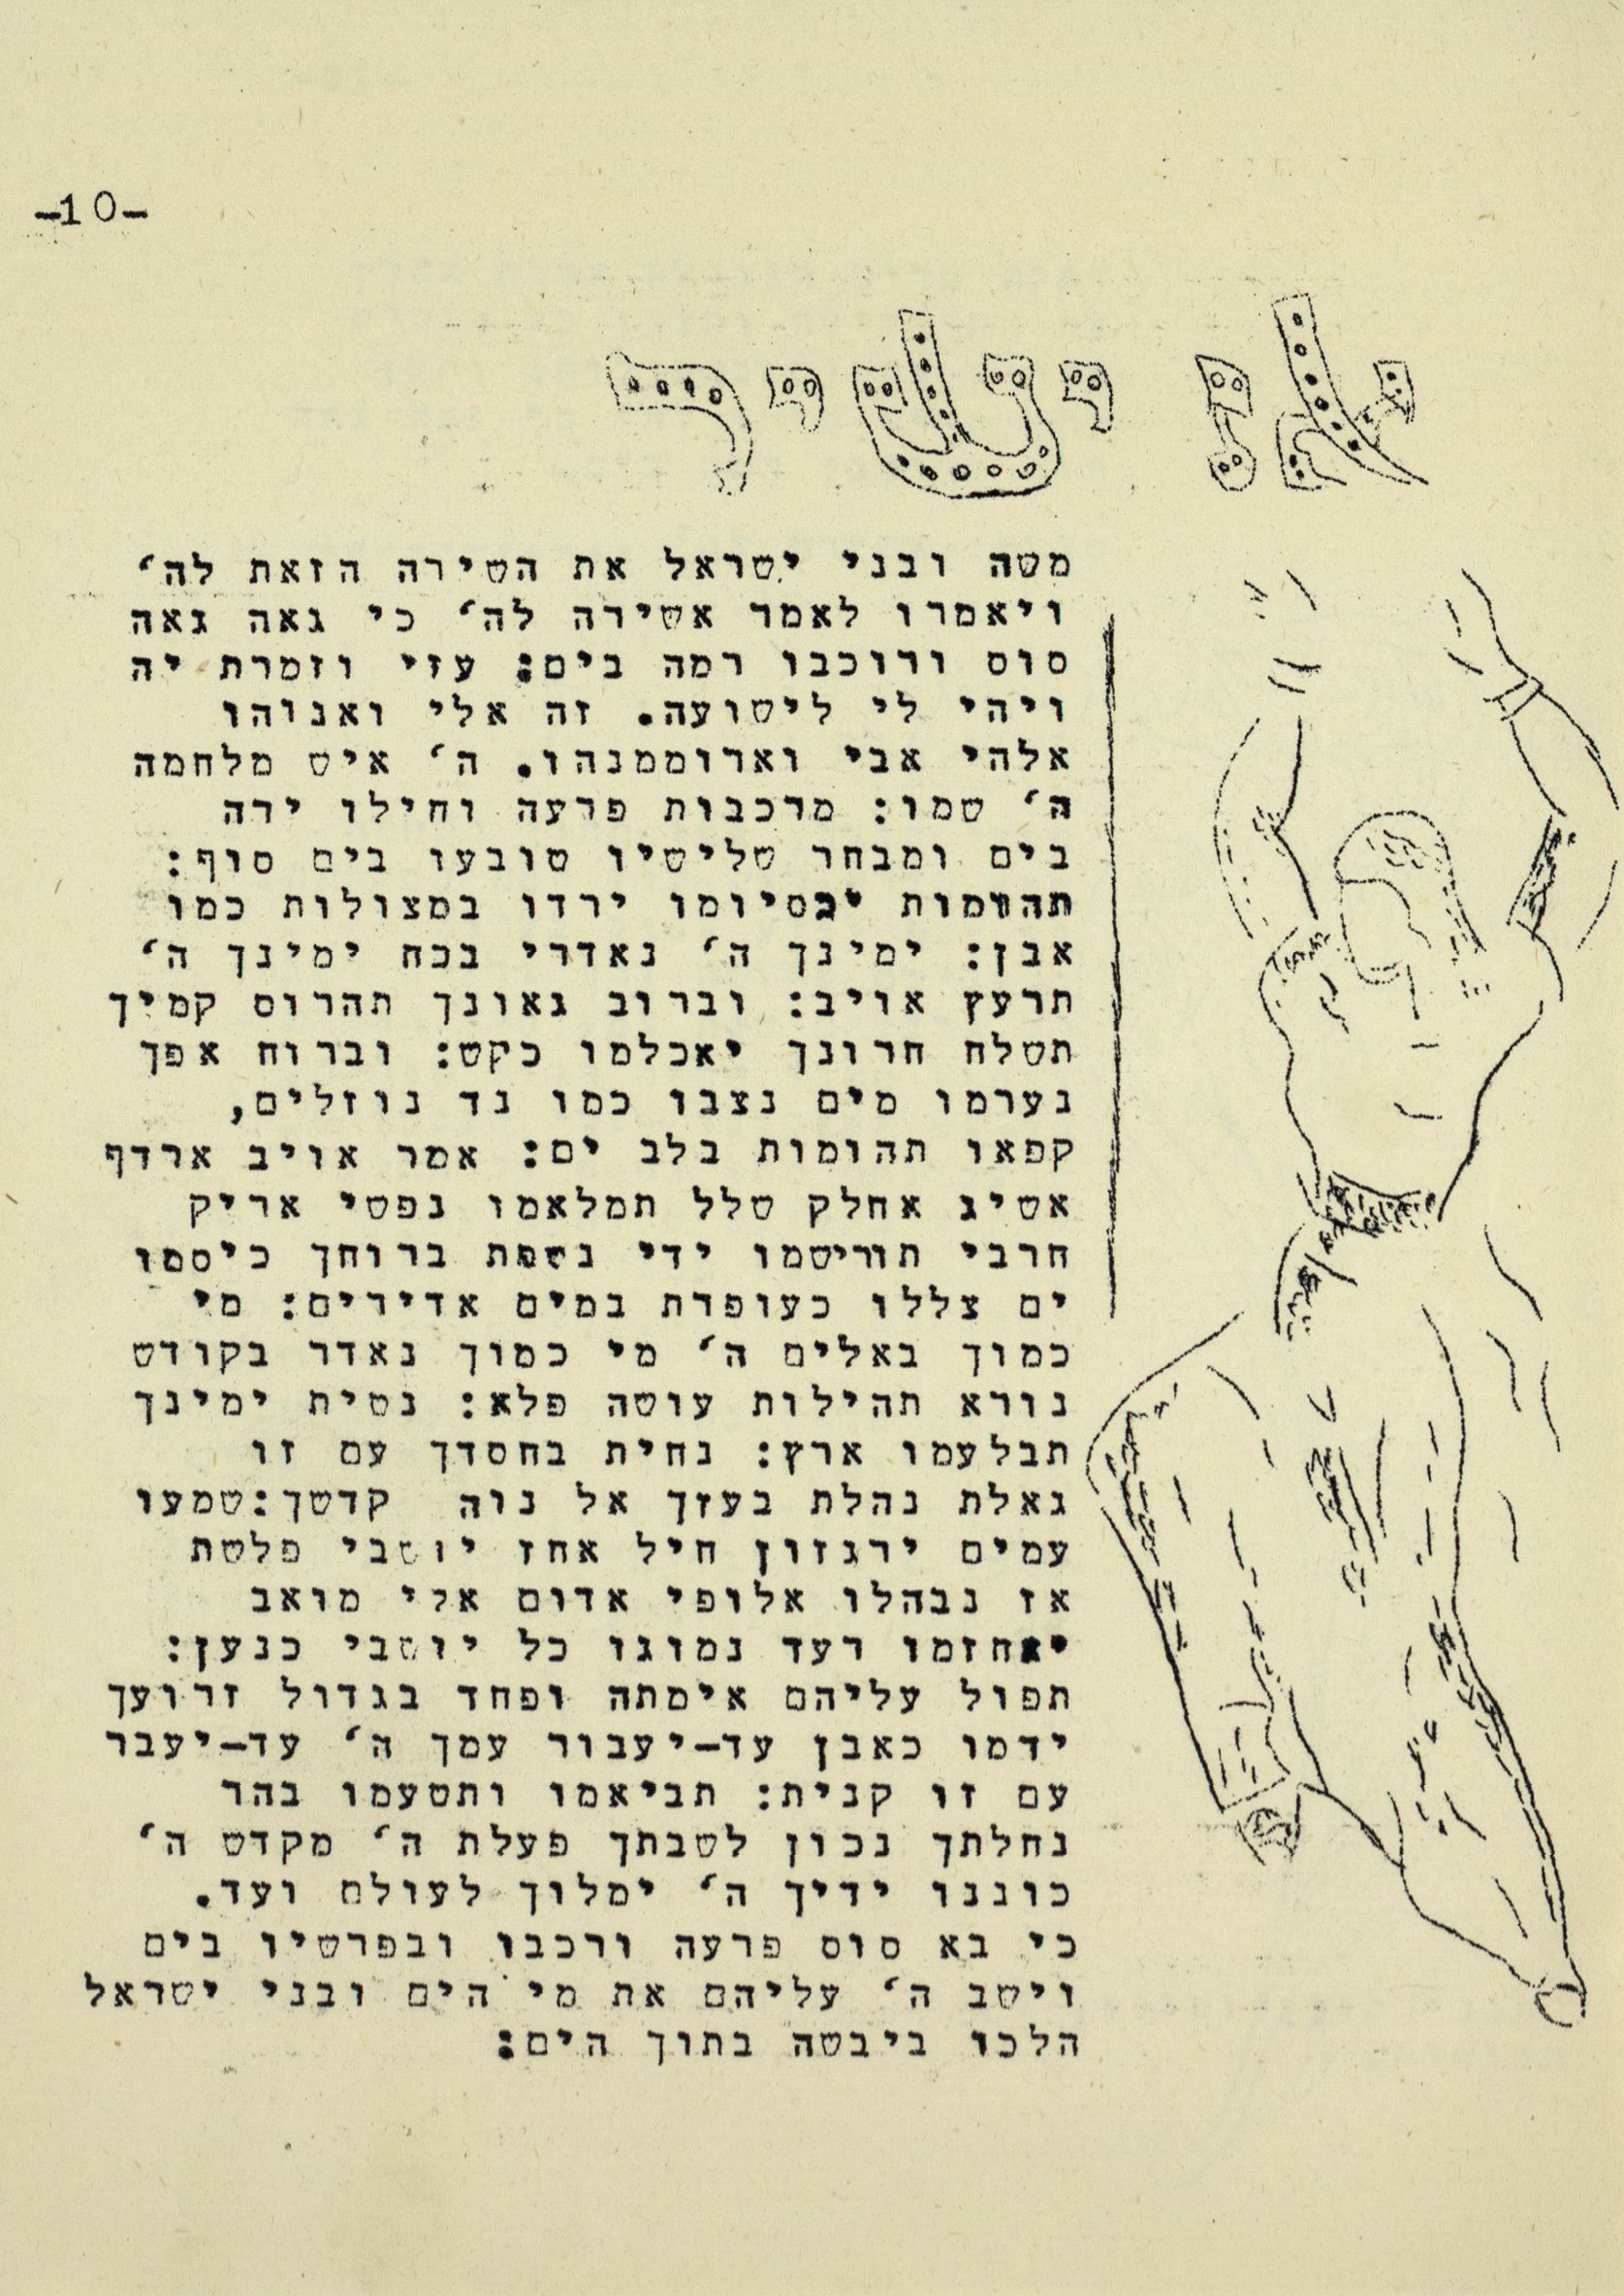 -10-
אז ישיר
משה ובני ישראל את השירה הזאת לה'
ויאמרו לאמר אשירה לה' כי גאה גאה
סוס ורוכבו רמה בים: עזי וזמרת יה
ויהי לי לישועה. זה אלי ואנוהו
אלהי אבי וארוממנהו. ה' איש מלחמה
ה' שמו: מרכבות פרעה וחילו ירה
בים ומבחר שלישיו טובעו בים סוף:
תהומות יכסיומו ירדו במצולות כמו
אבן: ימינך ה' נאדרי בכח ימינך ה'
תרעץ אויב: וברוב גאונך תהרוס קמיך
תשלח חרונך יאכלמו כקש: וברוח אפך
נערמו מים נצבו כמו נד נוזלים,
קפאו תהומות בלב ים: אמר אויב ארדף
אשיג אחלק שלל תמלאמו נפשי אריק
חרבי תורישמו ידי נשפת ברוחך כיסמו
ים צללו כעופרת במים אדירים: מי
כמוך באלים ה' מי כמוך נאדר בקודש
נורא תהילות עושה פלא: נטית ימינך
תבלעמו ארץ: נחית בחסדך עם זו
גאלת נהלת בעזך אל נוה קדשך:שמעו
עמים ירגזון חיל אחז יושבי פלשת
אז נבהלו אלופי אדום אלי מואב
יאחזמו רעד נמוגו כל יושבי כנען:
תפול עליהם אימתה ופחד בגדול זרועך
ידמו כאבן עד-יעבור עמך ה' עד-יעבר
עם זו קנית: תביאמו ותטעמו בהר
נחלתך נכון לשבתך פעלת ה' מקדש ה'
כוננו ידיך ה' ימלוך לעולם ועד.
כי בא סוס פרעה ורכבו ובפרשיו בים
וישב ה' עליהם את מי הים ובני ישראל
הלכו ביבשה בתוך הים: